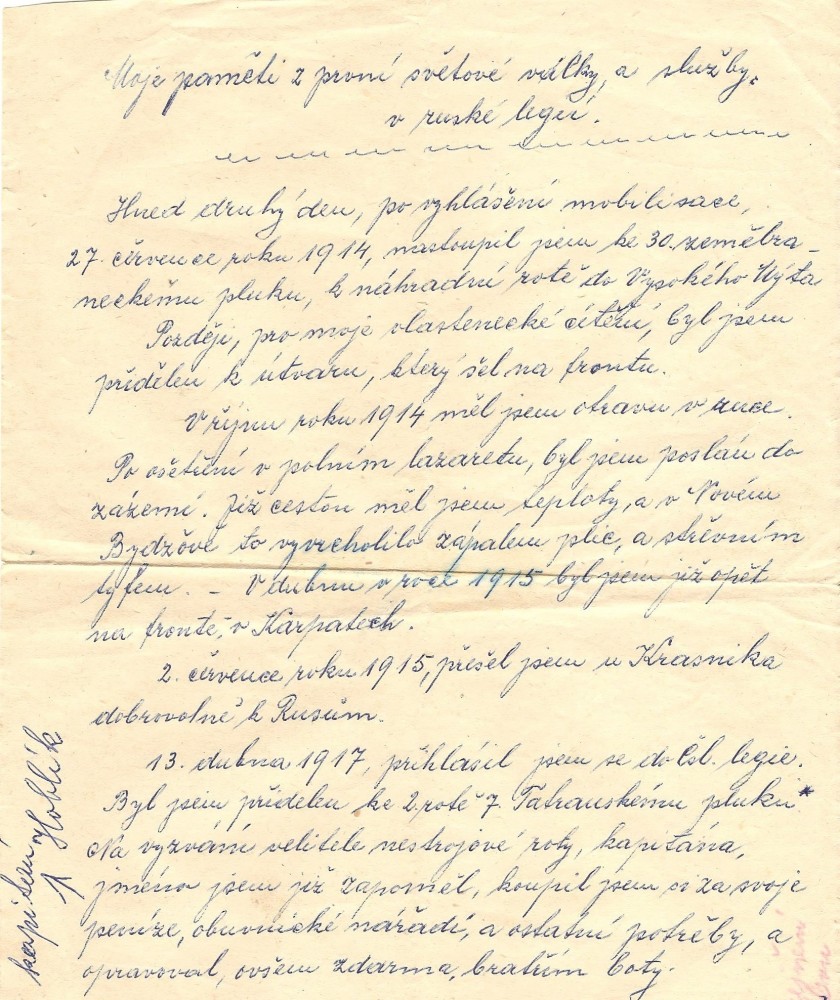 Moje paměti z první světové války, a služby
v ruské legii.
Hned druhý den, po vyhlášení mobilisace,
27. července roku 1914, nastoupil jsem ke 30. zeměbra-
neckému pluku, k náhradní rotě do Vysokého Mýta
Později, pro moje vlastenecké cítění, byl jsem
přidělen k útvaru, který šel na frontu.
V říjnu roku 1914 měl jsem otravu v ruce.
Po ošetření v polním lazaretu, byl jsem poslán do
zázemí. Již cestou měl jsem teploty, a v Novém
Bydžově to vyvrcholilo zápalem plic, a střevním
tyfem. – V dubnu v roce 1915 byl jsem již opět
na frontě, v Karpatech.
2. července roku 1915, přešel jsem u Krasnika
dobrovolně k Rusům.
13. dubna 1917, přihlásil jsem se do čsl. legie.
Byl jsem přidělen ke 2. rotě 7. Tatranskému pluku*
Na vyzvání velitele nestrojové roty, kapitána,
jméno jsem již zapoměl, koupil jsem si za svoje
peníze, obuvnické nářadí, a ostatní potřeby, a
opravoval, ovšem zdarma, bratřím boty.
Hoblík